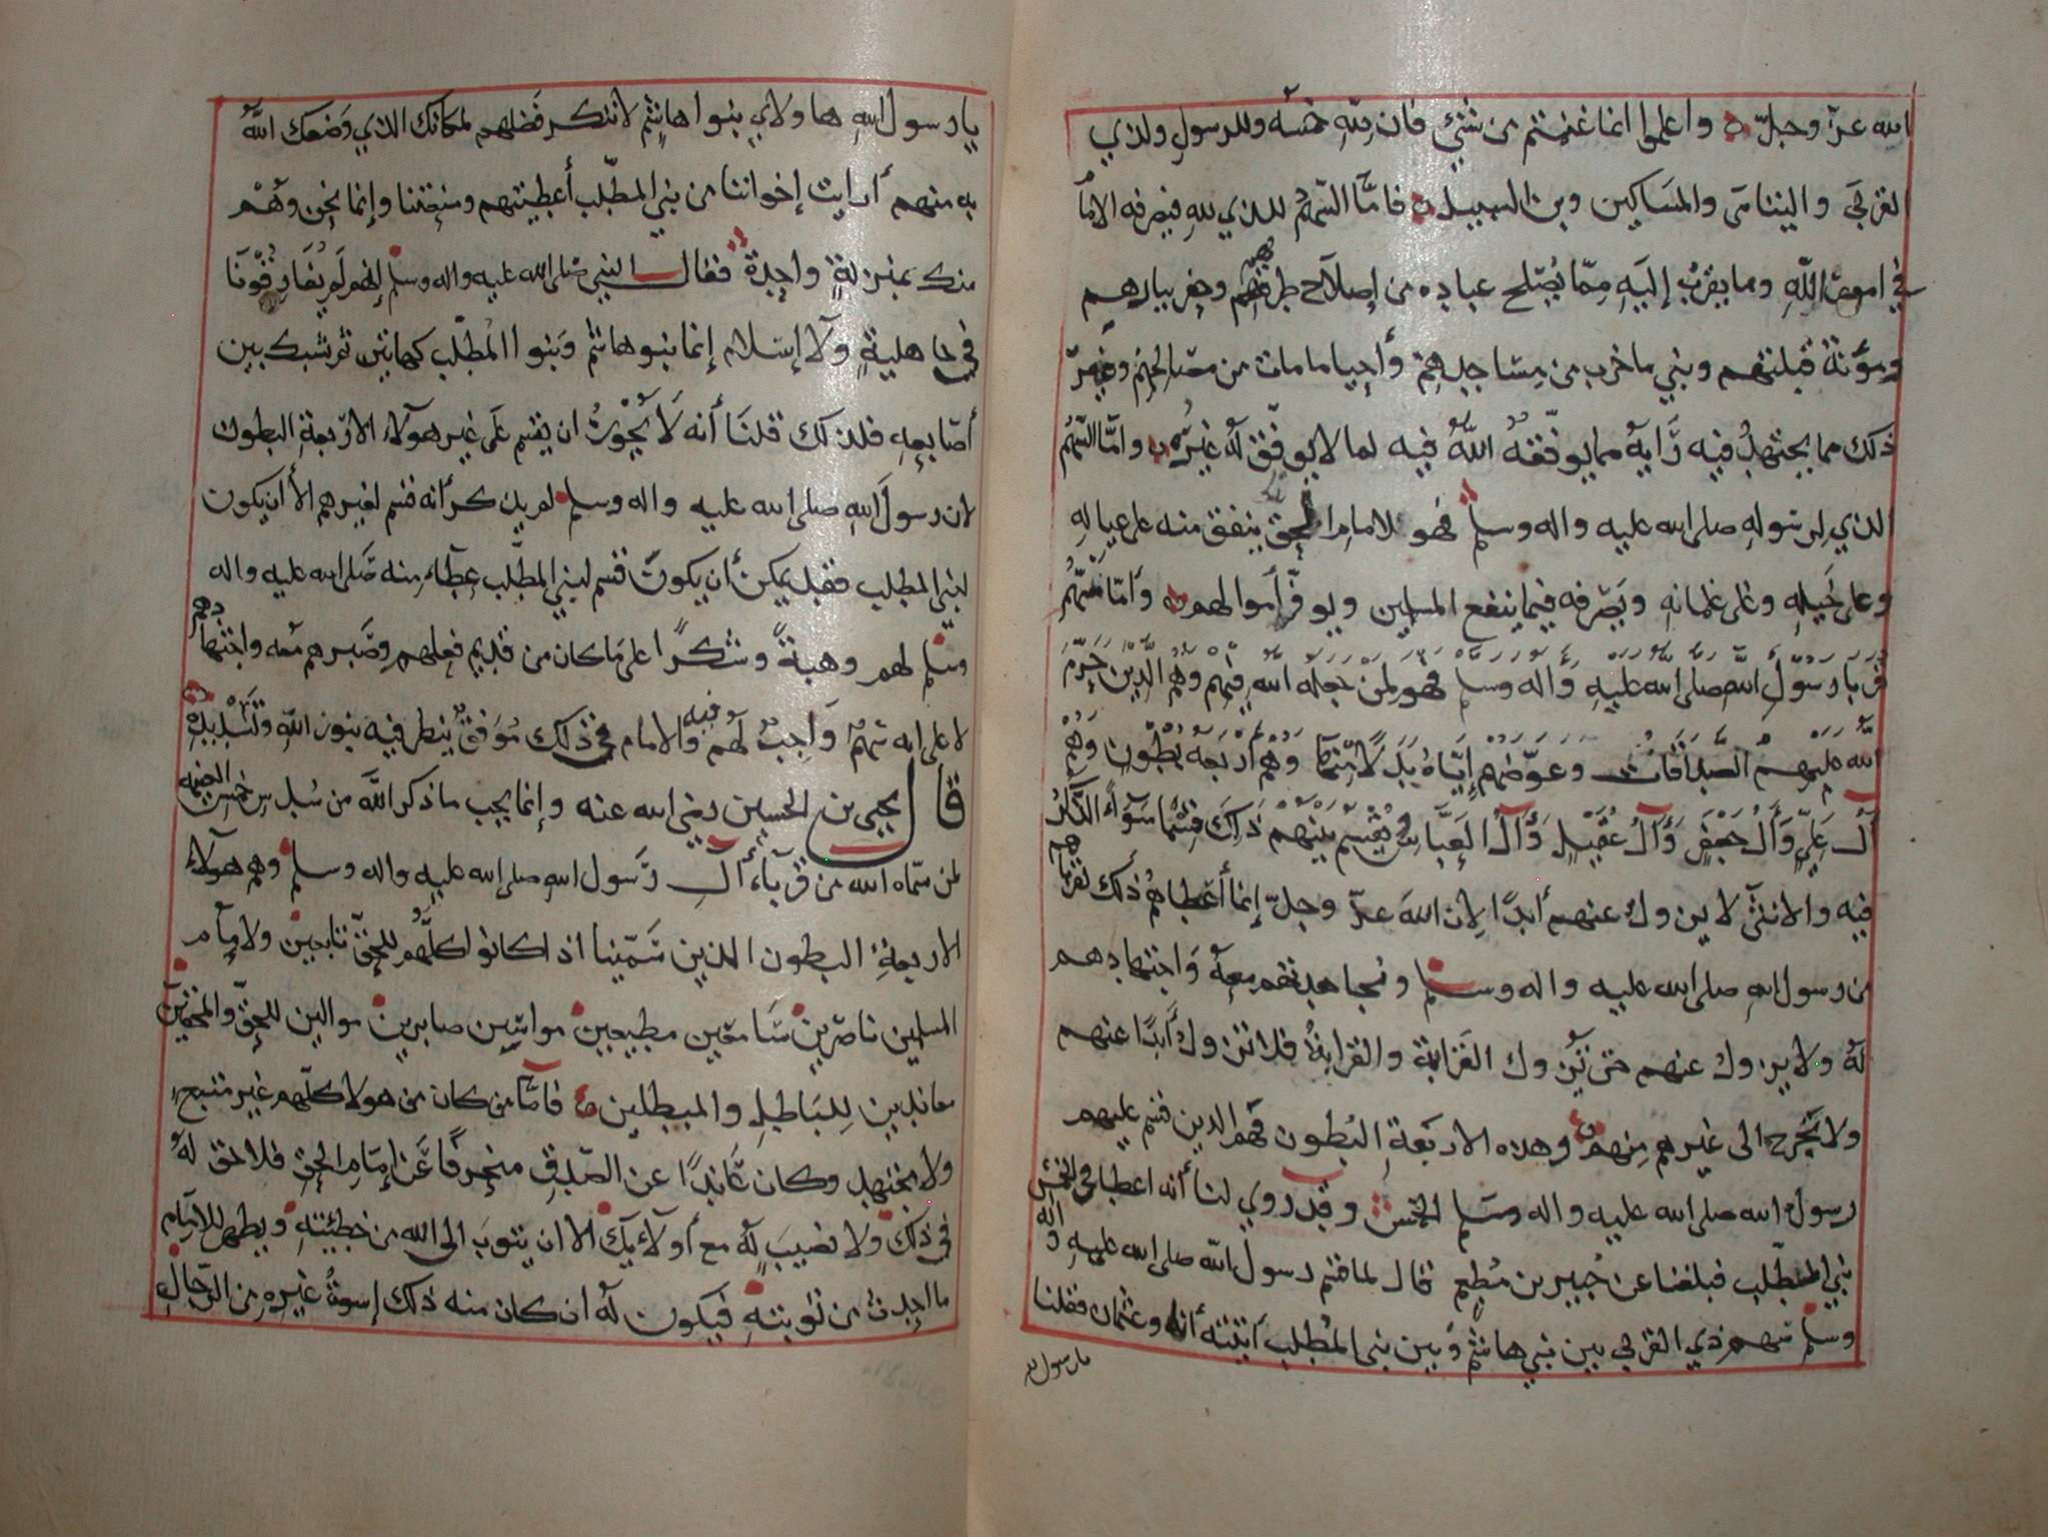 الله عز وجل واعلموا انما غنمتم من شيء فان لله خمسه وللرسول ولذي
القربى واليتامى والمساكين وبن السبيل فامّا السهم للذي لله فيصرفه الامام
في امور الله وما يقرب إليه ممّا يصلح عباده من إصلاح طرقهم وحفر بيارهم
ومؤنة قبلتهم وبني ما خرب من مساجدهم وأحيا ما مات من مصالحهم وغير
ذلك مما يجتهد فيه رايه مما يوفقه الله فيه لما لا يوفّق له غيره وامّا السهم
الذي لرسوله صلى الله عليه واله وسلم فهو للامام المحق ينفق منه على عياله
وعلى خيله وعلى غلمانه ويصرفه فيما ينفع المسلمين ويوفّر أموالهم وأمّا سهم
قربا رسول الله صلى الله عليه وآله وسلم فهو لمن جعله الله فيهم وهم الذين حرّم
الله عليهم الصدقات وعوّضهم إيّاه بدلا منها وهم أربعة بطون وهم
آل علي وآل جعفر وآل عقيل وآل العباس ويقسم بينهم ذلك قسما سوآء الذكر
فيه والانثى لا يزول عنهم أبدا لان الله عز وجلّ إنما أعطاهم ذلك لقرباهم
من رسول الله صلى الله عليه واله وسلم ومجاهدتهم معه واجتهادهم
له ولا يزول عنهم حتى تزول القرابة والقرابة فلا تزول أبدًا عنهم
ولا تخرج الى غيرهم منهم وهذه الاربعة البطون فهم الذين قسم عليهم
رسول الله صلى الله عليه واله وسلم الخمس وقد روي لنا أنه اعطا في الخمس
بني المطّلب فبلغنا عن جبير بن مطعم قال لما قسم رسول الله صلى الله عليه واله
وسلم سهم ذي القربى بين بني هاشم وبين بني المطلب أتيته أنا وعثمان فقلنا
يا رسول الله
يا رسول الله هاولاي بنوا هاشم لا تنكر فضلهم لمكانك الذي وضعك الله
به منهم أرايت إخواننا من بني المطّلب أعطيتهم ومنعتنا وإنما نحن وهم
منك بمنزلة واحدة فقال النبي صلى الله عليه واله وسلم إنهم لم يفارقونا
في جاهلية ولا إسلام إنما بنوا هاشم وبنوا المطّلب كهاتين ثم شبك بين
أصابعه فلذلك قلنا أنه لا يجوز ان يقسم على غير هولاء الاربعة البطون
لان رسول الله صلى الله عليه واله وسلم لم يذكر أنه قسم لغيرهم الا أن يكون
لبني المطلب فقد يمكن أن يكون قسم لبني المطّلب عطاء منه صلى الله عليه واله
وسلم لهم وهبةً وشكرًا على ما كان من قديم فعلهم وصبرهم معه واجتهادهم
لا على انه سهم واجب لهم فيه والامام في ذلك موفق ينظر فيه بنور الله وتسديده
قال يحيى بن الحسين رضي الله عنه وإنما يجب ما ذكر الله من سدس خمس الغنيمة
لمن سمّاه الله من قرباء آل رسول الله صلى الله عليه واله وسلم وهم هولاء
الاربعة البطون الذين سمّينا اذا كانوا كلهم للحق تابعين ولامام
المسلمين ناصرين سامعين مطيعين مواسين صابرين موالين للحق والمحقين
معاندين للباطل والمبطلين فامّا من كان من هولا كلهم غير متبع
ولا مجتهد وكان عاندًا عن الصدق منحرفًا عن إمام الحق فلا حق له
في ذلك ولا نصيب له مع أولائك الا ان يتوب الى الله من خطيئته ويظهر للامام
ما احدث من توبته فيكون له ان كان منه ذلك إسوة غيره من الرجال